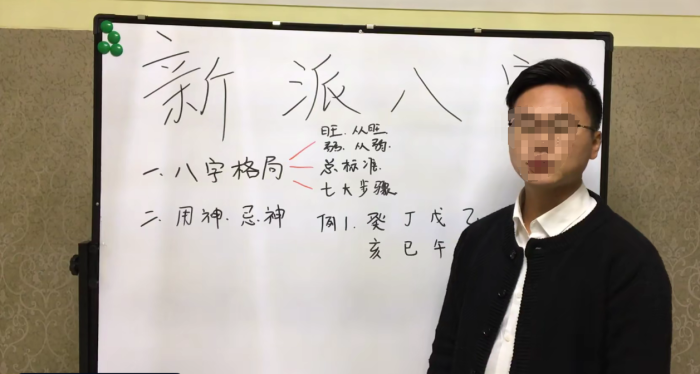 新派八
旺.从旺
弱.从弱.
一.八字格局
总标准.
七大步骤
二.用神.忌神 例1.癸丁戊乙
亥巳午